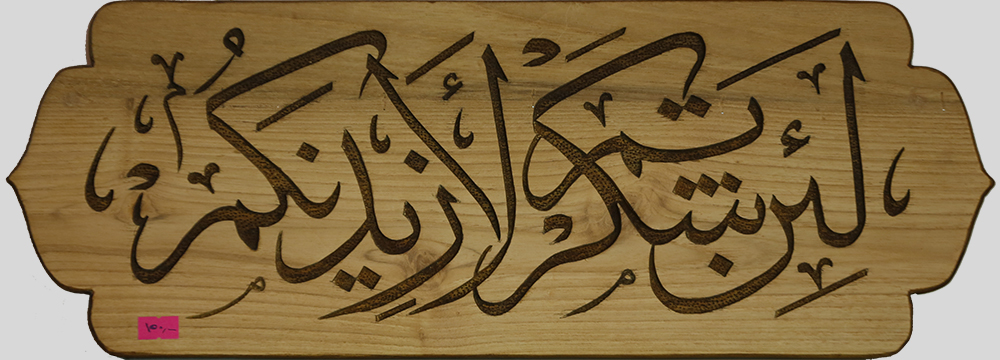 لَئِن شَكَرْتُمْ لَأَزِيدَنَّكُمْ
١٥٠,–